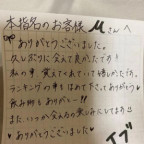 本指名のお客様 Mさんへ
ありがとうございました。
久しぶりに会えて良かったです!
私の事、覚えてくれていて嬉しかったです。
ランキングの事も初めて下さってありがとう♡
飲み物もありがとー!!
また、いつか会える日を楽しみにしてます
♡ありがとうございました♡